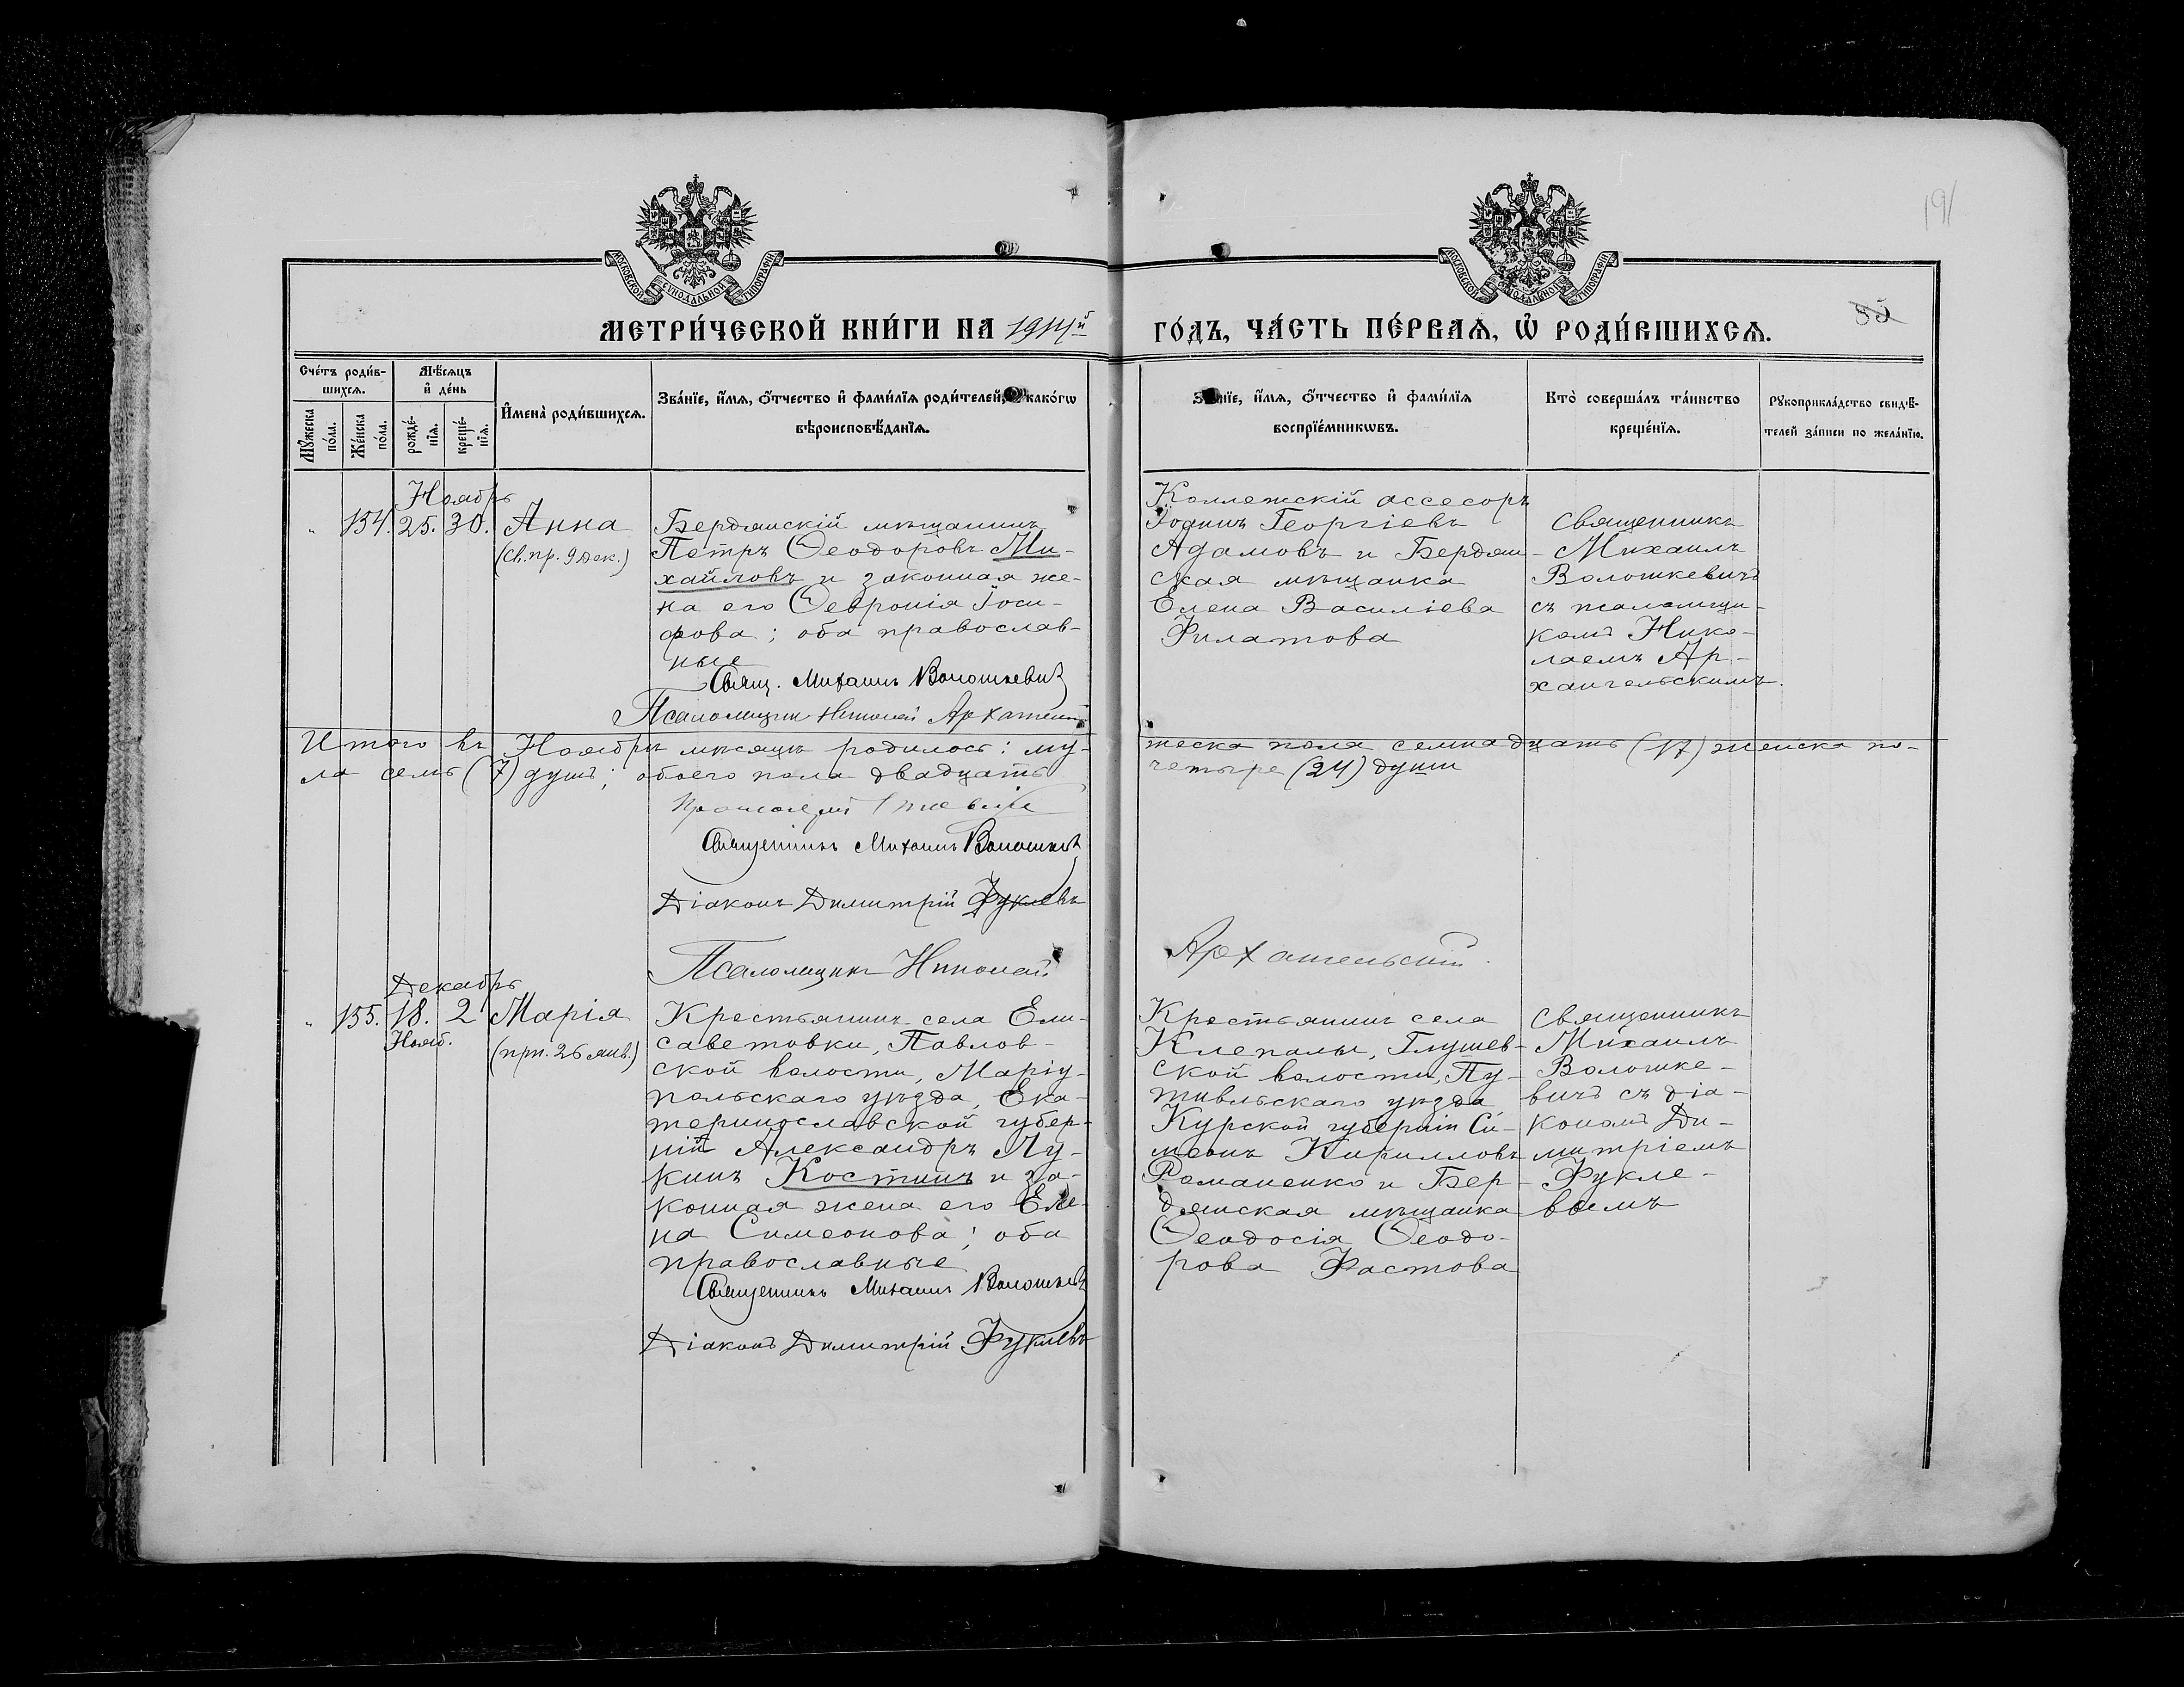 191
МОСКОВСКОЙ СѴНОДАЛЬНОЙ ТИПОГРАФІИ
МОСКОВСКОЙ СѴНОДАЛЬНОЙ ТИПОГРАФІИ
85
МЕТРИ́ЧЕСКОЙ КНИ́ГИ НА 1914й
ГО́ДЪ, ЧА́СТЬ ПЕ́РВАѦ, Ѡ РОДИ́ВШИХСѦ.
Сче́тъ роди́в-
шихсѧ.
Мꙋ́жеска
по́ла.
Же́нска
по́ла.
Мѣ́сѧцъ
и҆ де́нь
рожде́-
нїѧ.
креще́-
нїѧ.
И҆мена̀ роди́вшихсѧ.
Зва́нїе, и҆́мѧ, ѻ҆́тчество и҆ фами́лїѧ роди́телей, како́гѡ
вѣроисповѣ́данїѧ.
Зва́нїе, и҆́мѧ, ѻ҆́тчество и҆ фами́лїѧ
воспрїе́мникѡвъ.
Кто̀ соверша́лъ та́инство
креще́нїѧ.
Рꙋкоприкла́дство свидѣ́-
телей за́писи по жела́нїю.
Ноябрь
" 154. 25. 30.
Анна
(Св. пр. 9 дек.)
Бердянскій мѣщанинъ
Петръ Ѳеодоровъ Ми-
хайловъ и законная же-
на его Ѳевронія Іоси-
фова; оба православ-
ные
Свящ. Михаилъ Волошкевичъ
Псаломщикъ Николай Архангельскій
Коллежскій ассесоръ
Іоаннъ Георгіевъ
Адамовъ и Бердян-
ская мѣщанка
Елена Василіева
Филатова
Священникъ
Михаилъ
Волошкевичъ
съ псаломщи-
комъ Нико-
лаемъ Ар-
хангельскимъ.
Итого въ Ноябрѣ мѣсяцѣ родилось: му-
жеска пола семнадцать (17) женска по-
ла семь (7) душъ; обоего пола двадцать
четыре (24) души
Протоіерей
Священникъ Михаилъ Волошкевичъ
Діаконъ Димитрій Фуклевъ
Псаломщикъ Николай
Архангельскій.
Декабрь
" 155. 18. 2
Нояб.
Марія
(прп. 26 янв.)
Крестьянинъ села Ели-
саветовки, Павлов-
ской волости, Маріу-
польскаго уѣзда, Ека-
теринославской губер-
ніи Александръ Лу-
кинъ Костинъ и за-
конная жена его Еле-
на Симеонова; оба
православные
Священникъ Михаилъ Волошкевичъ
Діаконъ Димитрій Фуклевъ
Крестьянинъ села
Клепалы, Глушев-
ской волости, Пу-
тивльскаго уѣзда
Курской губерніи Си-
меонъ Кирилловъ
Романенко и Бер-
дянская мѣщанка
Ѳеодосія Ѳеодо-
рова Фастова
Священникъ
Михаилъ
Волошке-
вичъ съ діа-
кономъ Ди-
митріемъ
Фукле-
вымъ